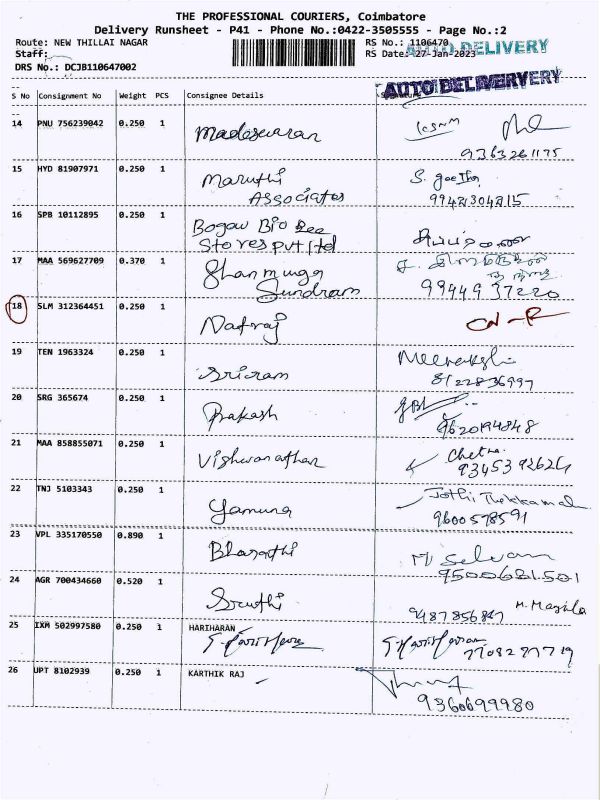 THE PROFESSIONAL COURIERS, Coimbatore
Delivery Runsheet - P41 - Phone No.:0422-3505555 - Page No.:2
Route: NEW THILLAI NAGAR RS No.: 1106470 AUTO DELIVERY
Staff: RS Date: 27-Jan-2023
DRS No.: DCJB110647002
AUTO DELIVERY
S No Consignment No Weight PCS Consignee Details Signature
14 PNU 756239042 0.250 1 Madeswaran
9363261175
15 HYD 81907971 0.250 1 Maruthi S. geetha
Associates 99421304215
16 SPB 10112895 0.250 1 Bogaw Bio Bee
Stores pvt ltd
17 MAA 569627709 0.370 1 Shanmuga
Sundram 9944937220
18 SLM 312364451 0.250 1 Natraj CN-R
19 TEN 1963324 0.250 1 Sriram Meenakshi
8122836997
20 SRG 365674 0.250 1 Prakash
9620194848
21 MAA 858855071 0.250 1 Vishwanathan Chetna
9345392624
22 TNJ 5103343 0.250 1 Yamuna Jothi Thekkamal
9600578591
23 VPL 335170550 0.890 1 Bharathi M Selvam
9500681501
24 AGR 700434660 0.520 1 Sruthi
9487856847 M. Magila
25 IXM 502997580 0.250 1 HARIHARAN
S. Hariharan S. Hariharan 7708297719
26 UPT 8102939 0.250 1 KARTHIK RAJ
9360699980